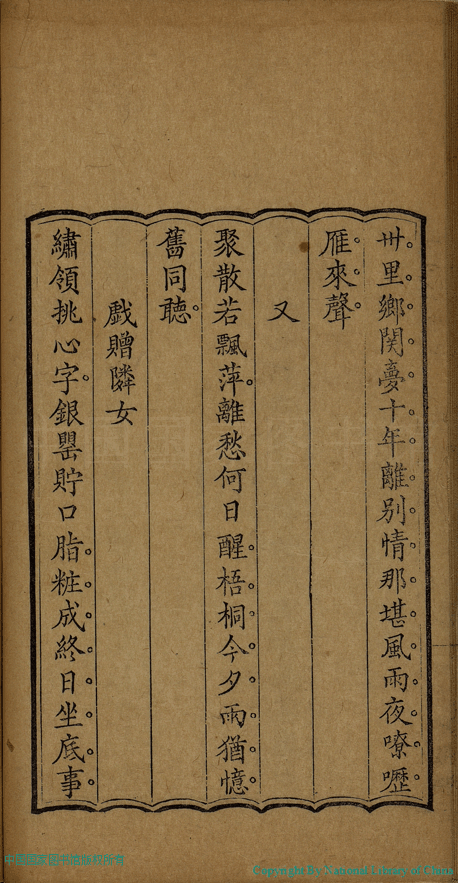 卅里鄉関夢十年離别情那堪風雨夜嘹嚦
雁來聲
又
聚散若飄萍離愁何日醒梧桐今夕雨猶憶
舊同聽
戲贈隣女
繡領挑心字銀罌貯口脂粧成終日坐底事
Copyright By National Library of China